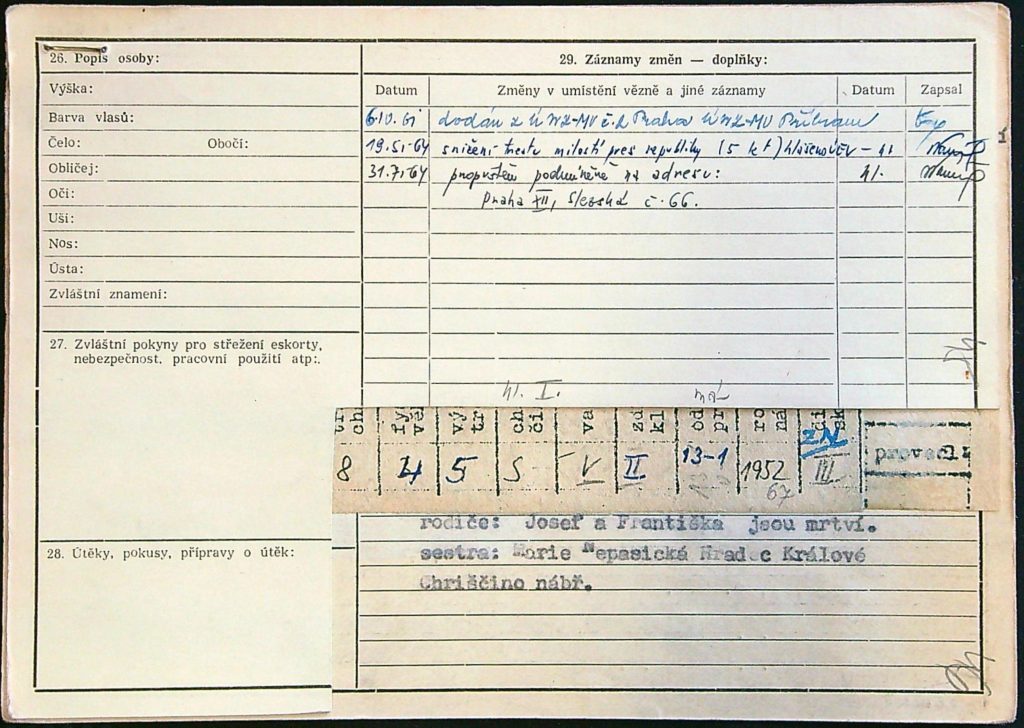 26. Popis osoby:
29. Záznamy změn — doplňky:
Výška:
Datum
Změny v umístění vězně a jiné záznamy
Datum
Zapsal
Barva vlasů:
dodán z ÚNZ-MV č.2 Praha ÚNZ-MV Příbram
Čelo: Obočí:
19.5.64 snížení trestu milostí pres. republiky (5 let)
Obličej:
31.7.64 propuštěn podmíněně na adresu:
Oči:
Praha XII, Slezská č. 66.
Uši:
Nos:
Ústa:
Zvláštní znamení:
27. Zvláštní pokyny pro střežení eskorty,
nebezpečnost, pracovní použití atp:.
tr
ch
vý
tr
ch
či
va
zd
kl
od
pr
ro
na
či
sk
ZN
provedl:
8 4 5 S V II 13-1 1952 III
67
rodiče: Josef a Františka jsou mrtví.
sestra: Marie Nepasická Hradec Králové
28. Útěky, pokusy, přípravy o útěk:
Chriščino nábř.